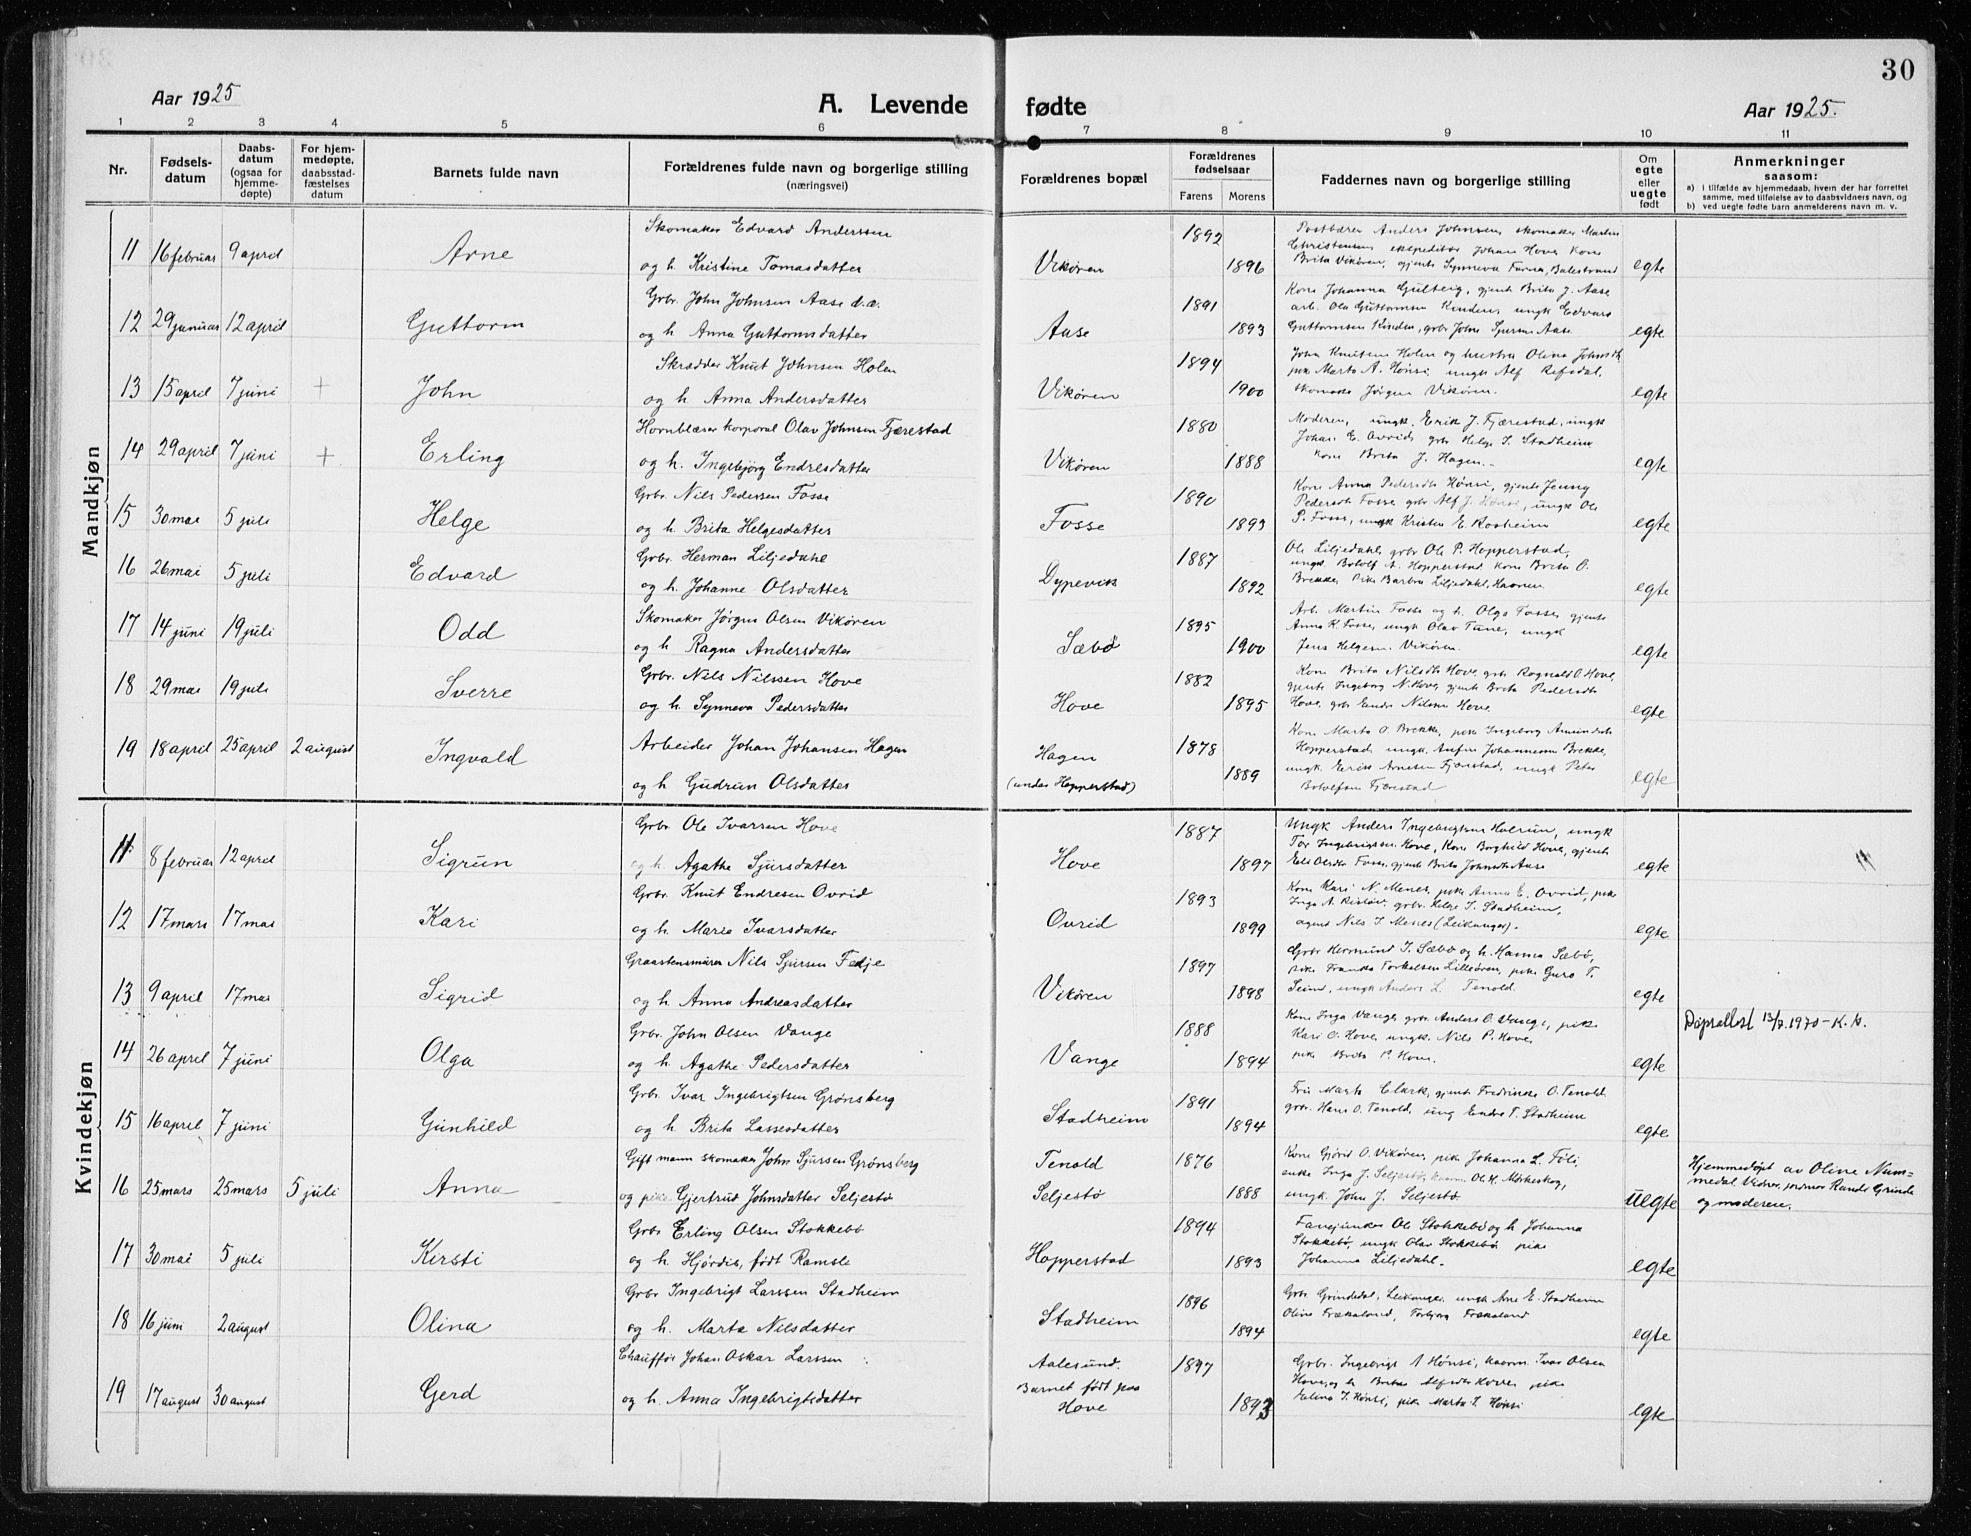 30
Aar 1925
A. Levende fødte
Aar 1925.
1 2 3 4 5 6 7 8 9 10 11
Nr.
Fødsels-
datum
Daabs-
datum
(ogsaa for
hjemme-
døpte)
For hjem-
medøpte,
daabsstad-
fæstelses
datum
Barnets fulde navn
Forældrenes fulde navn og borgerlige stilling
(næringsvei)
Forældrenes bopæl
Forældrenes
fødselsaar
Farens Morens
Faddernes navn og borgerlige stilling
Om
egte
eller
uegte
født
Anmerkninger
saasom:
a) i tilfælde av hjemmedaab, hvem der har forrettet
samme, med tilføielse av to daabsvidners navn, og
b) ved uegte fødte barn anmelderens navn m. v.
Mandkjøn
Skomaker Edvard Anderssen 1892 Postbærer Anders Johnsen, skomaker Martin
Christensen ekspeditør Johan Hove Kone
11 16 februar 9 april Arne og h. Kristine Tomasdatter Vikøren 1896 Brita Vikøren, gjente Synneva Farna, Balestrand egte
Grbr. John Johnsen Aase d.æ. 1891 Kone Johanna Gulberg, gjente Brita J. Aase
arb. Ola Guttormsen Kinden, ungk Edvard
12 29 januar 12 april Guttorm og h. Anna Guttormsdatter Aase 1893 Guttormsen Kinden, grbr John Sjursen Aase. egte
Skrædder Knut Johnsen Holen 1894 John Knutsen Holen og hustru Olina Johnsdt
pike Marta A. Hønsi, ungk Alf Refsdal,
13 15 april 7 juni + John og h. Anna Andersdatter Vikøren 1900 skomaker Jørgen Vikøren. egte
Hornblæser korporal Olav Johnsen Fjærestad 1880 Moderen, ungk. Erik J. Fjærestad, ungk
Johan E. Ovrid, grbr Helge I. Stadheim
14 29 april 7 juni + Erling og h. Ingebjørg Endresdatter Vikøren 1888 kone Brita J. Hagen. egte
Grbr. Nils Pedersen Fosse 1890 Kone Anna Pedersdt Hønsi, gjente Jenny
Pedersdt Fosse, grbr Alf J. Hønsi, ungk Ole
15 30 mai 5 juli Helge og h. Brita Helgesdatter Fosse 1893 P. Fosse, ungk Kristen E. Rosheim egte
Grbr. Herman Liljedahl 1887 Ole Liljedahl, grbr Ole P. Hopperstad,
ungk. Botolf A. Hopperstad kone Brita O.
16 26 mai 5 juli Edvard og h. Johanne Olsdatter Dypevik 1892 Brekke, Pike Barbra Liljedahl, egte
Skomaker Jørgen Olsen Vikøren 1895 Arb. Martin Fosse og h. Olga Fosse, gjente
Anna K. Fosse, ungk Olav Tune, ungk
17 14 juni 19 juli Odd og h Ragna Andersdatter Sæbø 1900 Jens Helgesen Vikøren. egte
Grbr. Nils Nilssen Hove 1882 Kone Brita Nilsdtr Hove, grbr Rognald O. Hove,
gjente Ingeborg N. Hove, gjente Brita Pedersdtr
18 29 mai 19 juli Sverre og h. Synneva Pedersdatter Hove 1895 Hove, grbr Endre Nilsen Hove egte
Arbeider Johan Johansen Hagen 1878 Kone Marta O. Brekke, pike Ingeborg Amundsdt
Hopperstad, ungk. Anfin Johannesen Brekke,
19 18 april 25 april 2 august Ingvald og h Gudrun Olsdatter Hagen (under Hopperstad) 1889 ungk. Erik Arnesen Fjærestad, ungk Peter egte
Botolfsen Fjærestad
Kvindekjøn
Grbr Ole Ivarsen Hove 1887 Ungk Anders Ingebrigtsen, ungk
Tor Ingebrigtsen Hove, Kone Borghild Hove, gjente
11 8 februar 12 april Sigrun og h. Agathe Sjursdatter Hove 1897 Eli Olsdtr Fosse, gjente Brita Johnsdtr Aase egte 11
Grbr. Knut Endresen Ovrid 1893 Kone Kari N. Menes, pike Anna E. Ovrid, pike
Inga A. grbr. Helge I. Stadheim,
12 17 mars 17 mai Kari og h. Marie Ivarsdatter Ovrid 1899 agent Nils I. Menes (Leikanger). egte
Graastensmurer Nils Sjursen Fedje 1897 Grbr Hermund I. Sæbø og h. Hanna Sæbø,
pike Franda Torkelsen Lillesøren, pike Guro T.
13 9 april 17 mai Sigrid og h. Anna Andreasdatter Vikøren 1898 Seim, ungk Anders L. Tenold. egte
Grbr. John Olsen Vange 1888 Kone Inga Vange, grbr. Anders O. Vange, pike Dåpsattest 13/7.1970 - K.
Kari O. Hove, ungk. Nils P. Hove,
14 26 april 7 juni Olga og h. Agathe Pedersdatter Vange 1894 pike Brita P. Hove. egte
Grbr. Ivar Ingebrigtsen Grønsberg 1891 Frk Marta Clark, gjente Fredrikke O. Tenold
grbr. Hans O. Tenold, ung Endre T. Stadheim
15 16 april 7 juni Gunhild og h. Brita Lassesdatter Stadheim 1894 egte
Gift mann skomaker John Sjursen Grønsberg Tenold 1876 Kone Gjörid O. Vikøren, pike Johanna L. Föli,
enke Inga J. Seljestø, Ole K. Mörkeskog,
16 25 mars 25 mars 5 juli Anna og pike Gjertrud Johnsdatter Seljestø Seljestø 1888 ungk. John J. Seljestø uegte
Hjemmedøpt av Oline Num-
medal. Vidner, jordmor Randi Grinde
og moderen.
Grbr Erling Olsen Stokkebø 1894 Fanejunker Ole Stokkebø og h Johanna
Stokkebø, ungk Olav Stokkebø pike
17 30 mai 5 juli Kirsti og h. Hjørdis, født Ramsli Hopperstad 1893 Johanna Liljedahl. egte
Grbr Ingebrigt Larssen Stadheim 1896 Grbr. Grindedal, Leikanger, ungk Arne E. Stadheim
Oline Frækaland, Torbjørg Frækaland
18 16 juni 2 august Olina og h. Marta Nilsdatter Stadheim 1894 egte
Chauffør Johan Oskar Larssen Aalesund. 1897 Grbr. Ingebrigt A Hønsi, Ivar Olsen
Hove, og h. Brita Alfsdtr Hove, pike
19 17 august 30 august Gerd og h. Anna Ingebrigtsdatter Barnet født paa Hove 1893 Elina I. Hønsi, pike Marta I. Hønsi egte